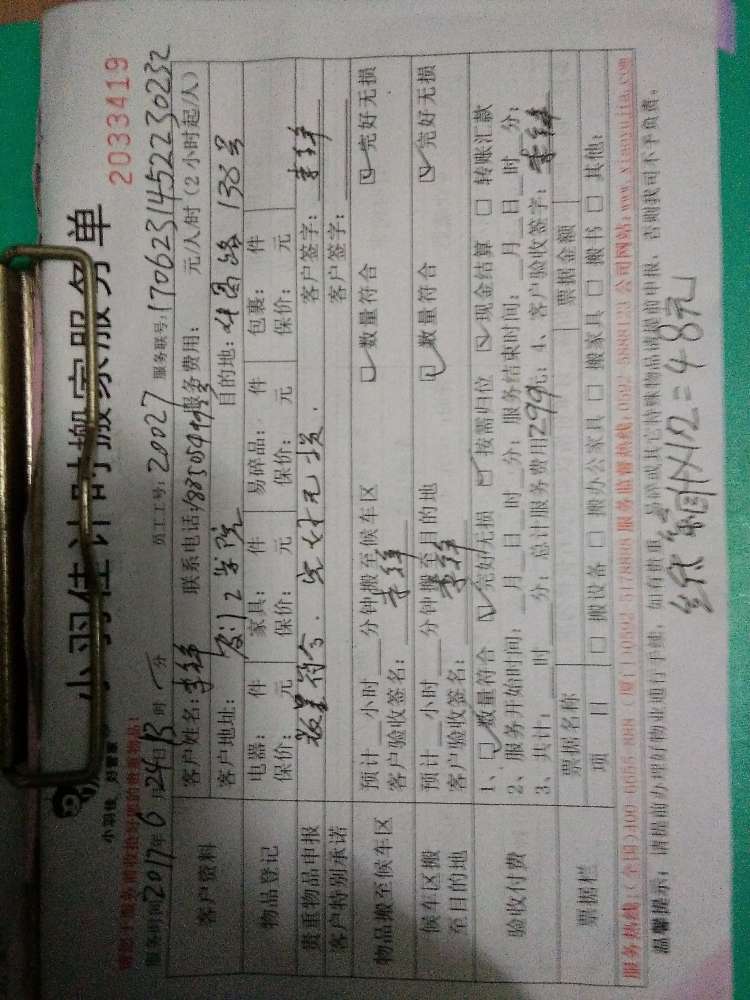 小羽佳计时搬家服务单
小羽佳 好管家
2033419
请您于服务前收拾好您的贵重物品!
服务时间2017年6月24日13时 分 员工工号: 20027 服务联号: 170623145223023
客户资料
客户姓名: 联系电话: 服务费用: 元/人/时 (2小时起/人)
客户地址: 厦门工学院 目的地: 138号
物品登记
电器: 件 家具: 件 易碎品: 件 包裹: 件
保价: 元 保价: 元 保价: 元 保价: 元
贵重物品申报 数量符合、完好无损. 客户签字:
客户特别承诺 客户签字:
物品搬至候车区
预计 小时 分钟搬至候车区 □数量符合 ☑完好无损
客户验收签名:
候车区搬至目的地
预计 小时 分钟搬至目的地 ☑数量符合 ☑完好无损
客户验收签名:
验收付费
1、☑数量符合 ☑完好无损 ☑按需归位 ☑现金结算 □转账汇款
2、服务开始时间: 月 日 时 分; 服务结束时间: 月 日 时 分;
3、共计: 时 分; 总计服务费用299元; 4、客户验收签字:
票据栏
票据名称 票据金额
项目 □搬设备 □搬办公家具 □搬家具 □搬书 □其他:
服务热线:(全国)400-6655-088 (厦门)0592-5178808 服务监督热线:0592-5888123 公司网站:www.xiaoyujia.com
温馨提示: 请提前办理好物业通行手续, 如有贵重、易碎或其它特殊物品请提前申报, 否则我司不予负责。
4×12=48元